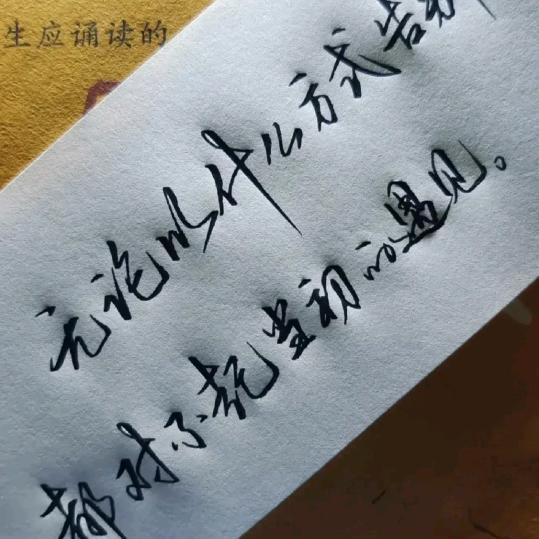 生应诵读的
无论以什么方式告
都对不起当初的遇见。